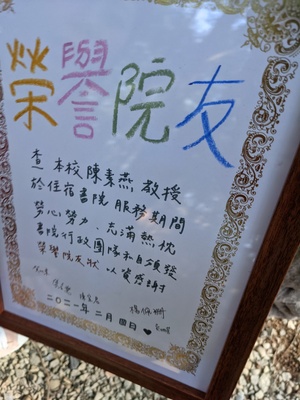 榮譽院友
查 本校陳素燕教授
於住宿書院服務期間
勞心勞力、充滿熱忱
書院行政團隊永自頒發
榮譽院友狀、以資感謝
二〇二一年二月四日